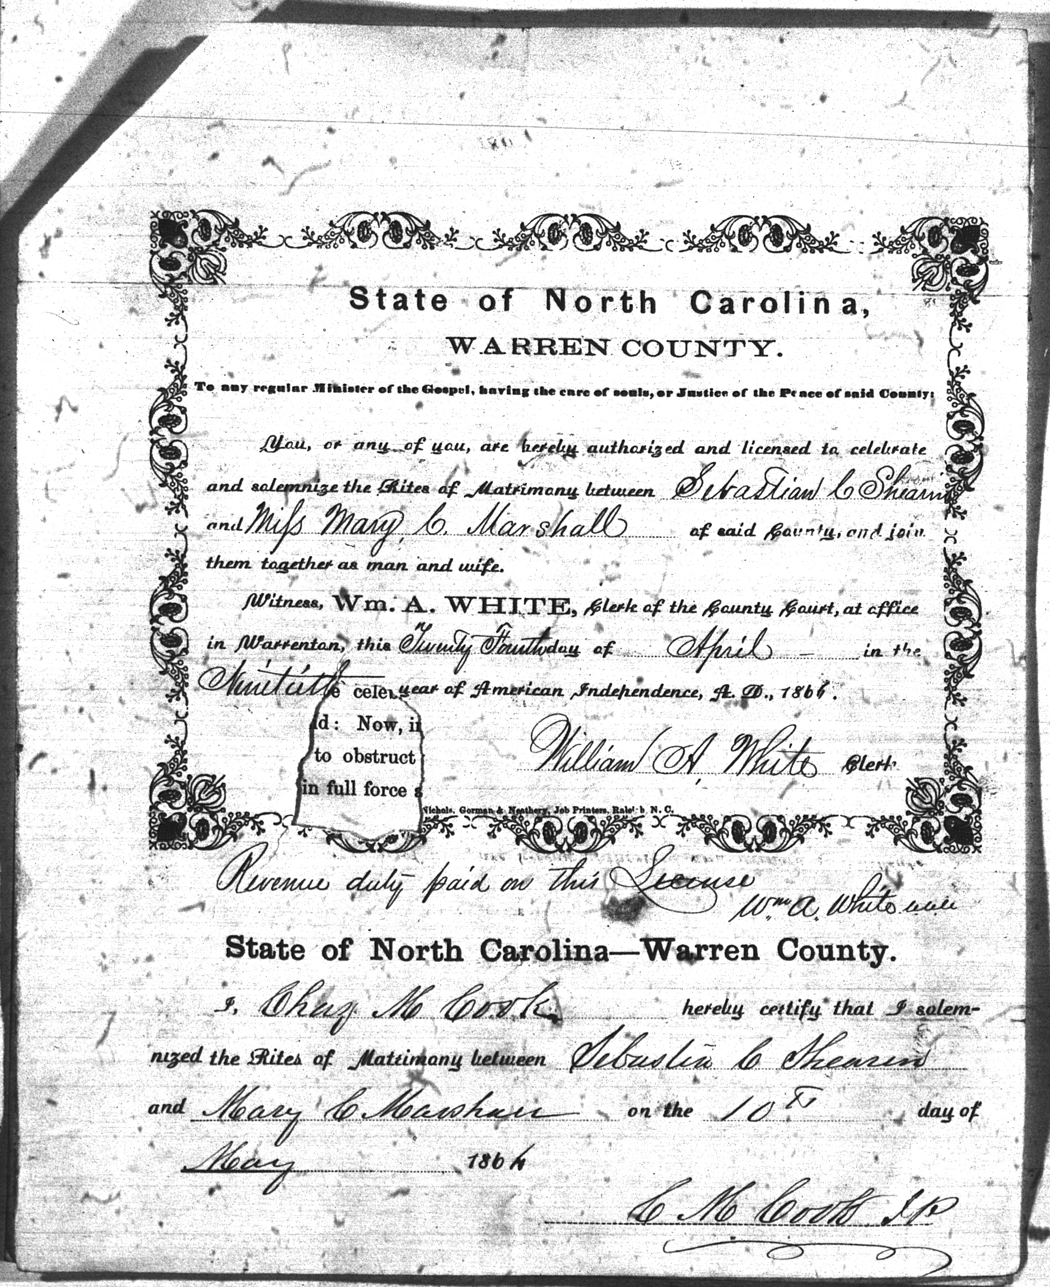 State of North Carolina,
WARREN COUNTY.
To any regular Minister of the Gospel, having the care of souls, or Justice of the Peace of said County:
You, or any of you, are hereby authorized and licensed to celebrate
and solemnize the Rites of Matrimony between Sebastian C Shearin
and Miss Mary C. Marshall of said County, and join
them together as man and wife.
Witness, Wm. A. WHITE, Clerk of the County Court, at office
in Warrenton, this Twenty Fourth day of April in the
Ninetieth year of American Independence, A. D., 1866.
e cele
d: Now, i
to obstruct
in full force
William A. White Clerk
Nichols, Gorman & Neathery, Job Printers, Raleigh N. C.
Revenue duty paid on this License
Wm A. White
State of North Carolina—Warren County.
I, Chas M Cook hereby certify that I solem-
nized the Rites of Matrimony between Sebastin C Shearin
and Mary C Marshall on the 10th day of
May 1866
C M Cook J P